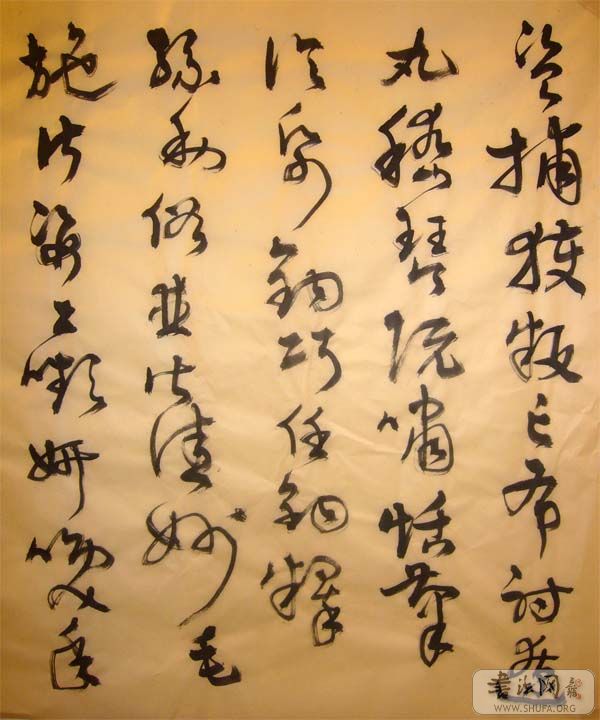 盜捕獲叛亡布射僚
丸嵇琴阮嘯恬筆
倫紙鈞巧任釣釋
紛利俗並皆佳妙毛
施淑姿工嚬妍咲年
書法网
WWW.SHUFA.ORG